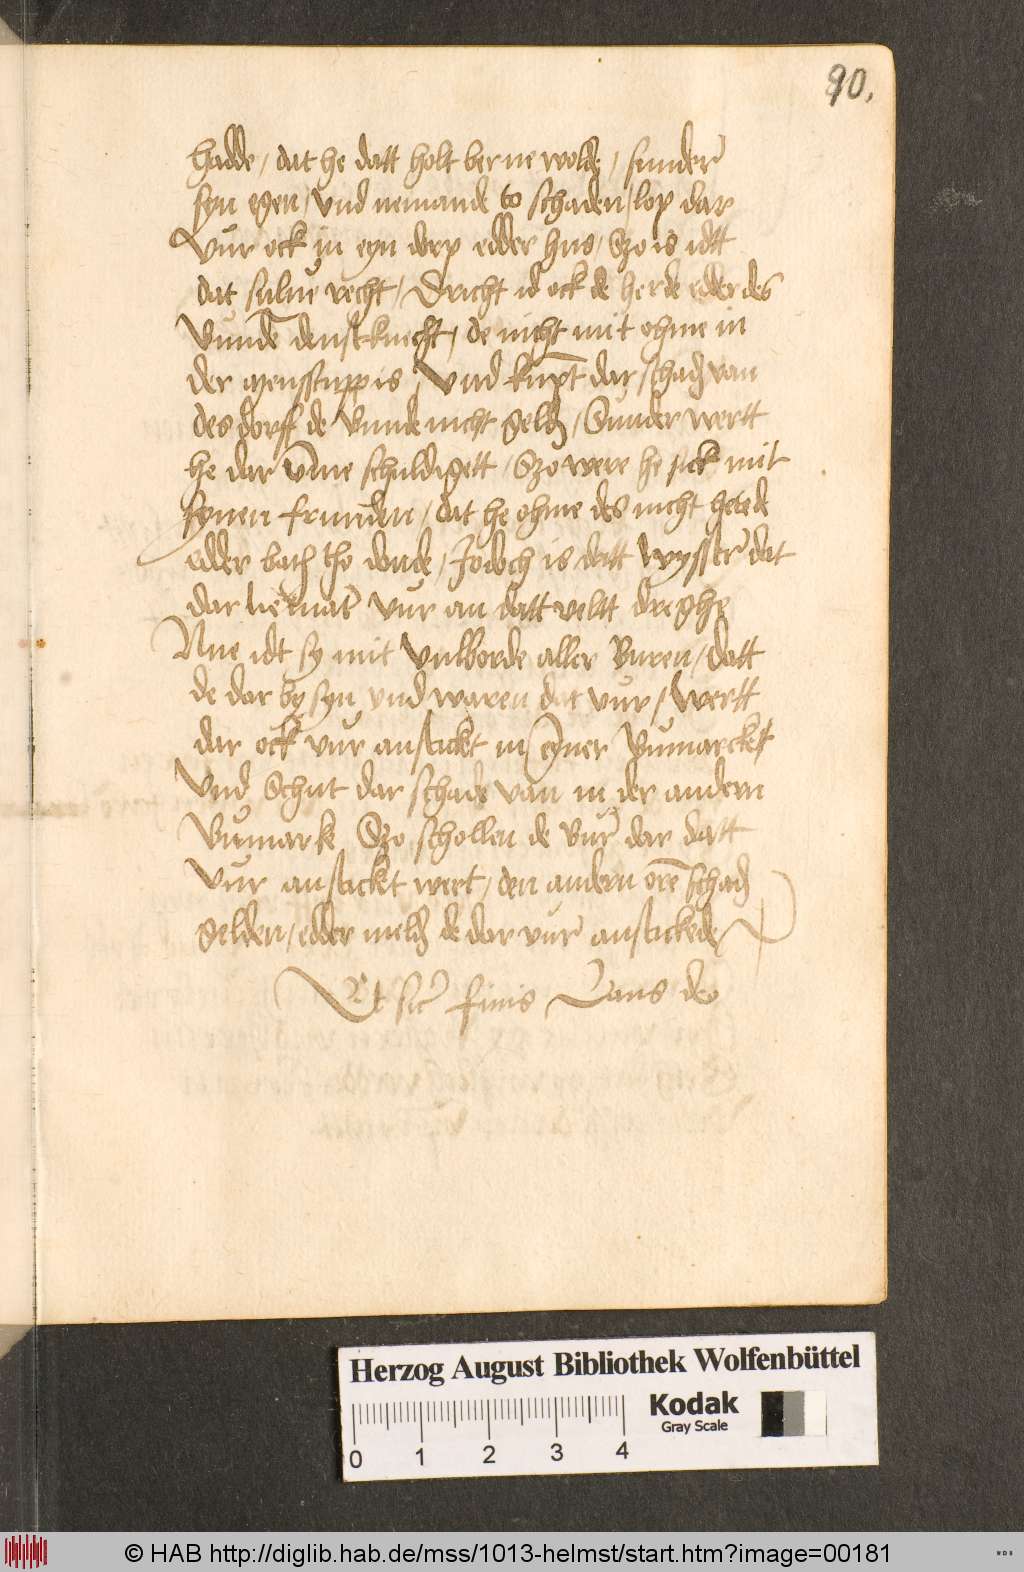 90.
hadde / dat he datt holt berne wolde / sunder
syn egen / vnd nemande to schaden / lop dar
vůr ock in eyn dorp edder hus / Szo is idtt
dat sulue recht / Dricht id ock de herde edder des
denstknecht / de nicht mit ohme in
der is / Vnd kůpt dar schadē van
des dorff de nicht geldē / Sunder wertt
he dar v̄me schuldigett / Szo were he sick mit
synen frunden / dat he ohme des nicht hete de
edder bath tho donde / Jodoch is datt wysser dat
dar vůr an datt veltt dreghe
Nue idt sy mit vulborde aller Buren / datt
de dar by syn vnd waren dat vůr / Wertt
dar ock vůr anstickt in eyner Bůmarcke
Vnd Schut dar schade van in der andern
Bůmarke Szo schollen de Bůr dar datt
Vůr anstickt wert / den andern ore schadē
gelden / edder meldē de dar vůr anstickede
Et sic finis Laus deo
Herzog August Bibliothek Wolfenbüttel
Kodak
Gray Scale
0 1 2 3 4
© HAB http://diglib.hab.de/mss/1013-helmst/start.htm?image=00181